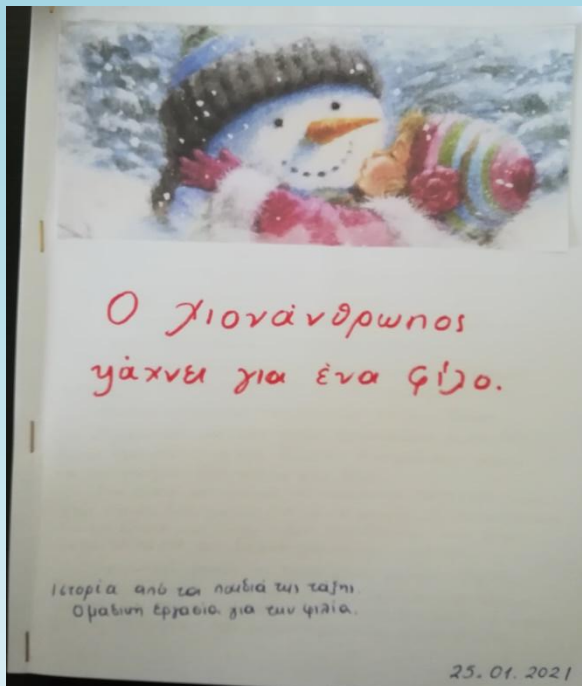 Ο χιονάνθρωπος
ψάχνει για ένα φίλο.
Ιστορία από τα παιδιά της τάξης.
Ομαδική εργασία για την φιλία.
25.01.2021